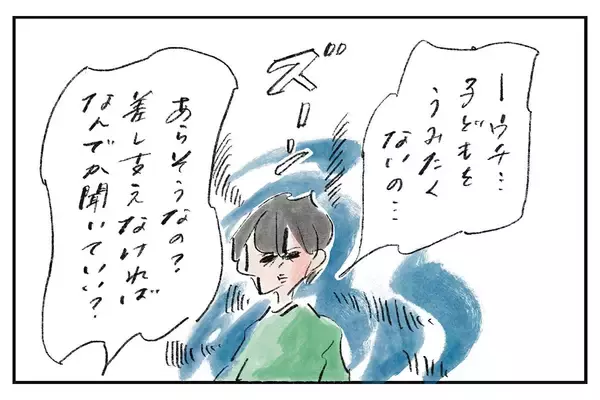 ーウチ…
子どもを
うみたく
ないの…
ズーン
あらそうなの?
差し支えなければ
なんでか聞いていい?